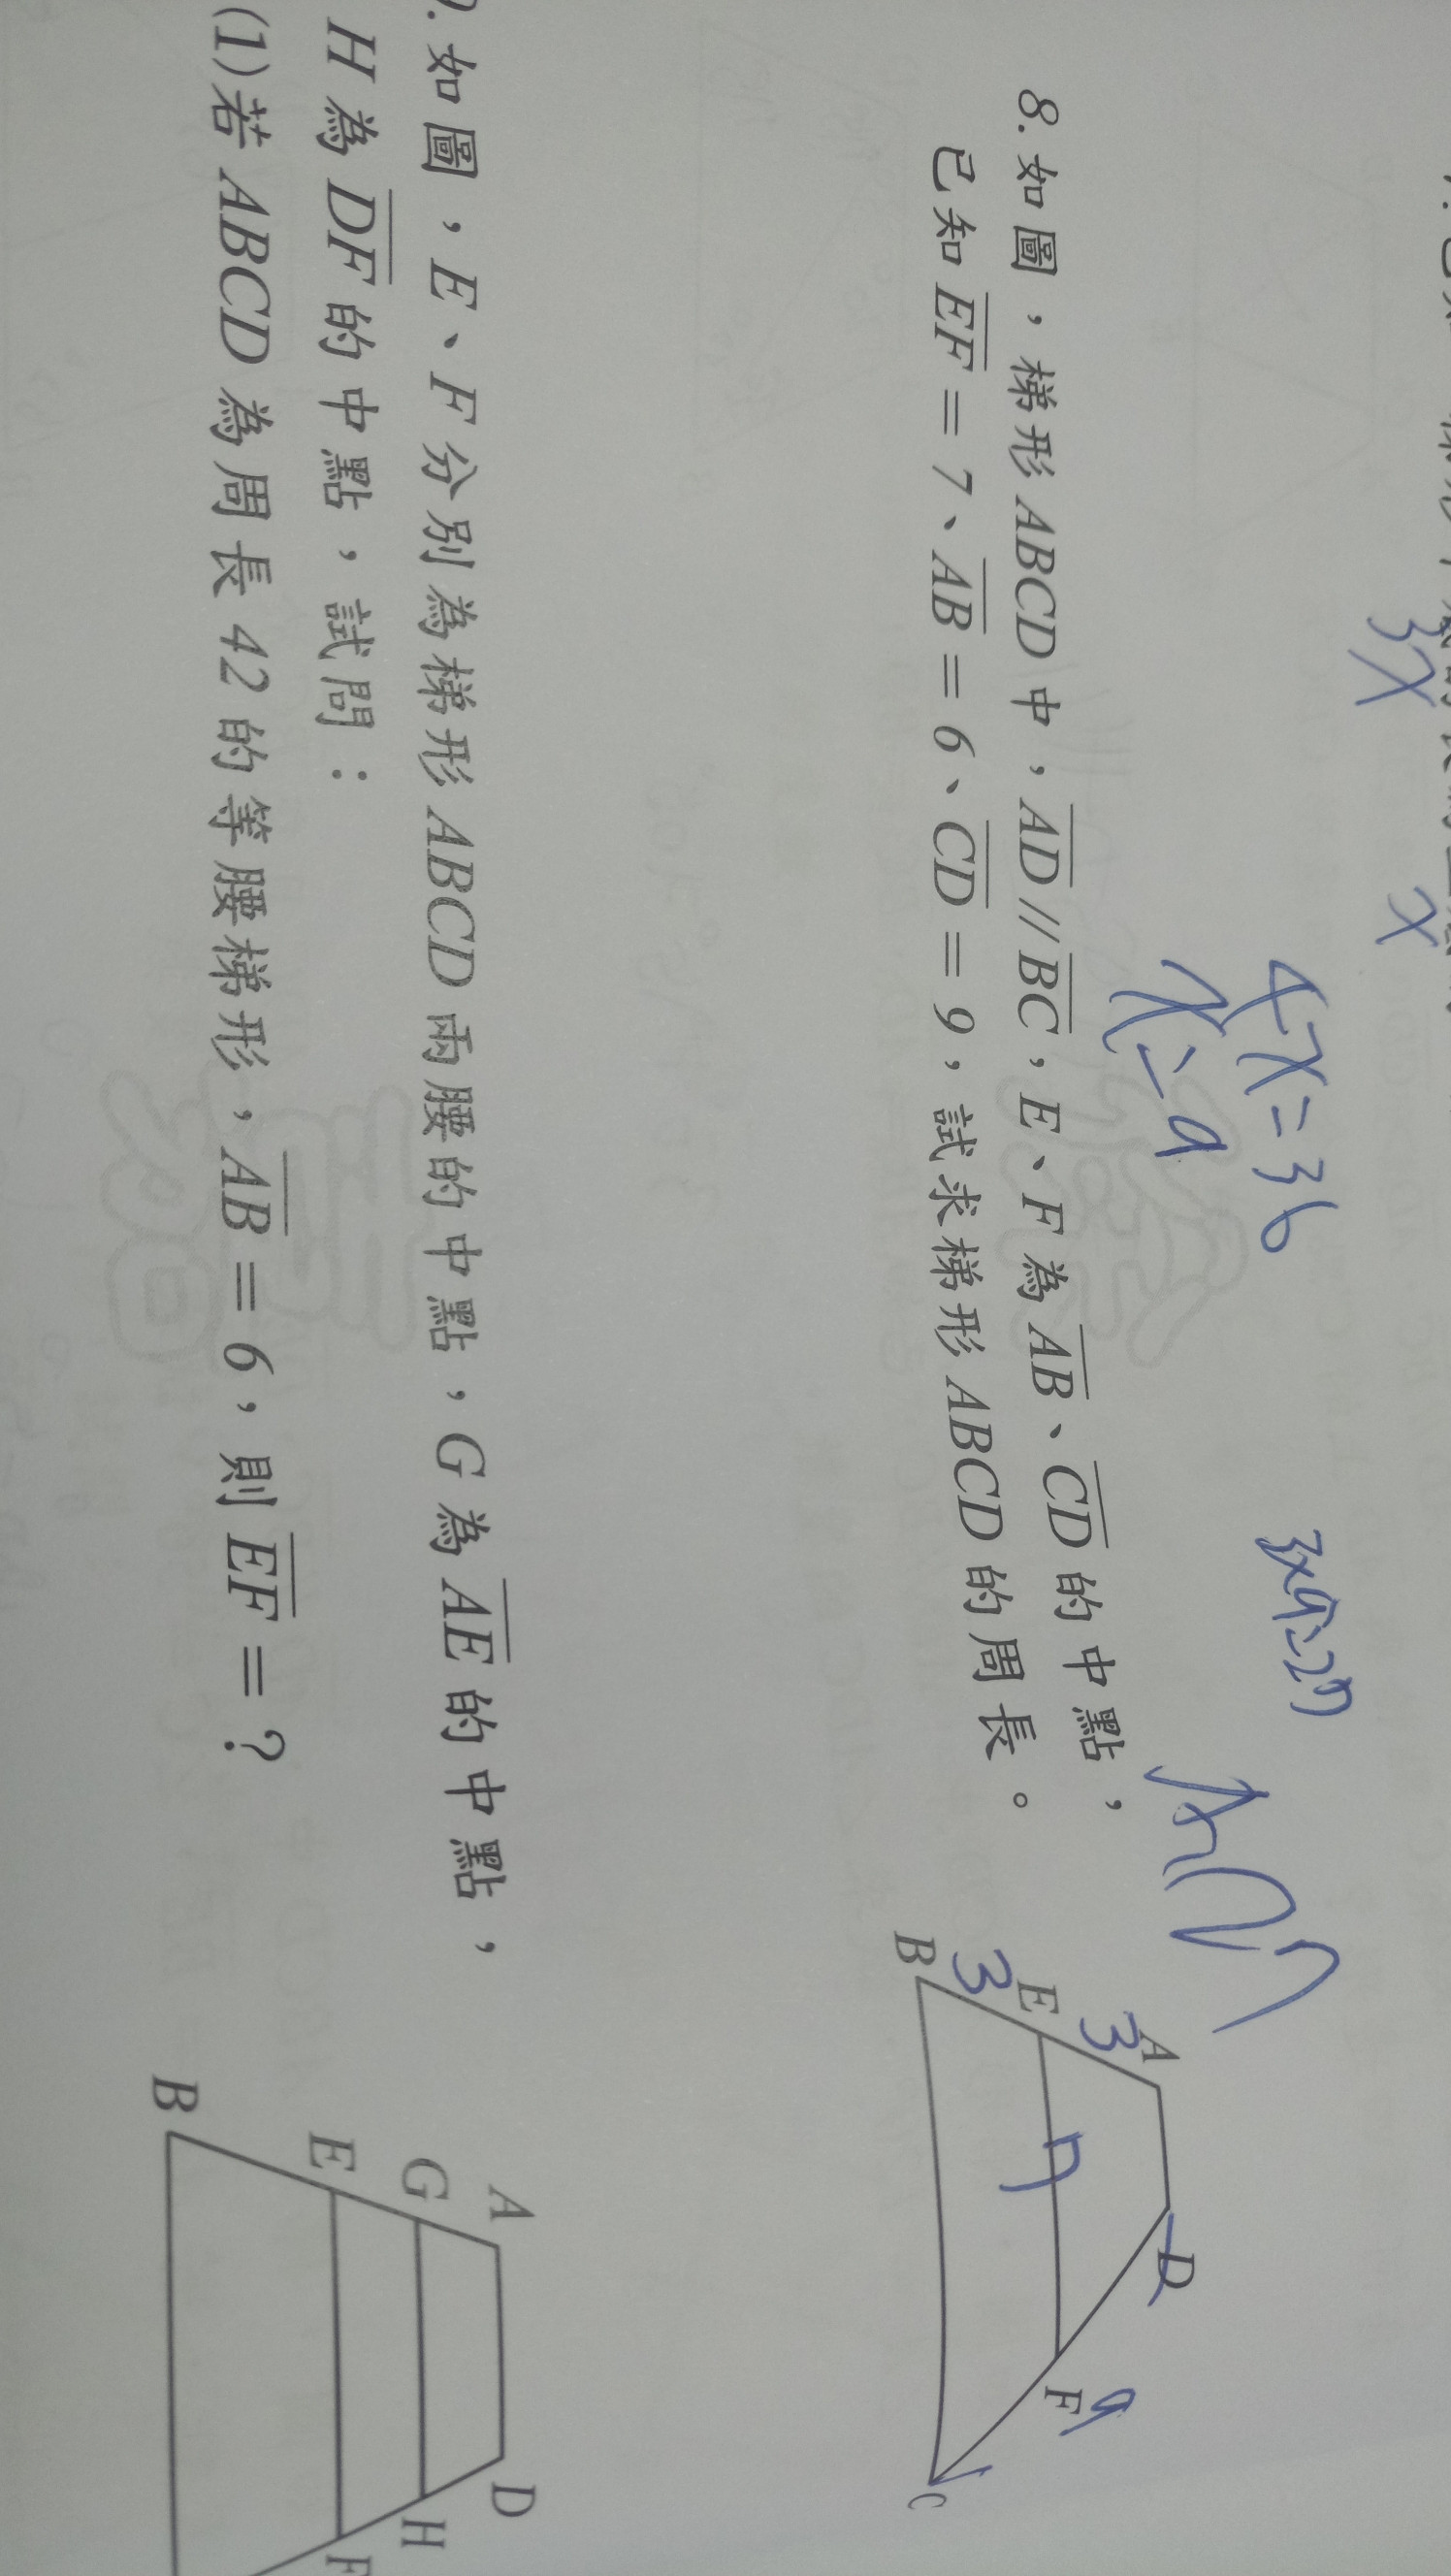 3x
x
4x=36
x=9
3x9=27
8.如圖，梯形ABCD中，AD//BC，E、F為AB、CD的中點，
已知EF=7、AB=6、CD=9，試求梯形ABCD的周長。
A
D
3
E
7
F
9
3
B
C
.如圖，E、F分別為梯形ABCD兩腰的中點，G為AE的中點，
H為DF的中點，試問：
(1)若ABCD為周長42的等腰梯形，AB=6，則EF=？
A
D
G
H
E
F
B